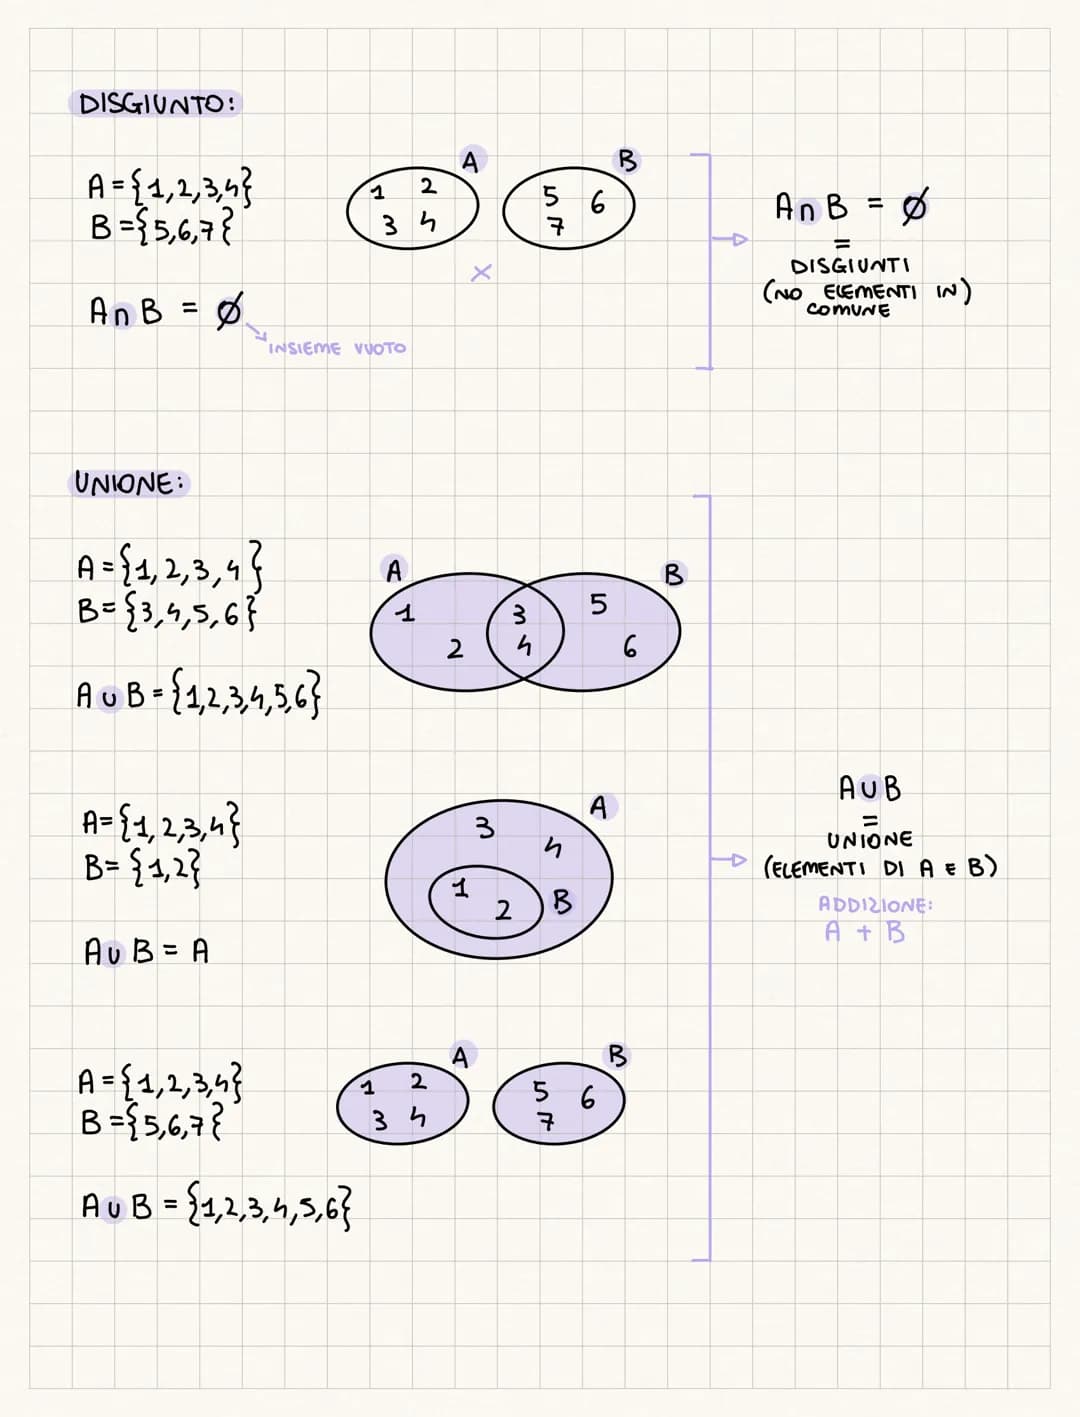 DISGIUNTO:
A = {1,2,3,4}
B = {5,6,7}
A ∩ B = ∅
INSIEME VUOTO
A
1 2
3 4
B
5 6
7
×
A ∩ B = ∅
=
DISGIUNTI
(NO ELEMENTI IN)
COMUNE
UNIONE:
A = {1,2,3,4}
B = {3,4,5,6}
A ∪ B = {1,2,3,4,5,6}
A
B
1
2
3
4
5
6
A = {1,2,3,4}
B = {1,2}
A ∪ B = A
A
3
4
1
2
B
A ∪ B
=
UNIONE
(ELEMENTI DI A E B)
ADDIZIONE:
A + B
A = {1,2,3,4}
B = {5,6,7}
A ∪ B = {1,2,3,4,5,6}
A
1 2
3 4
B
5 6
7